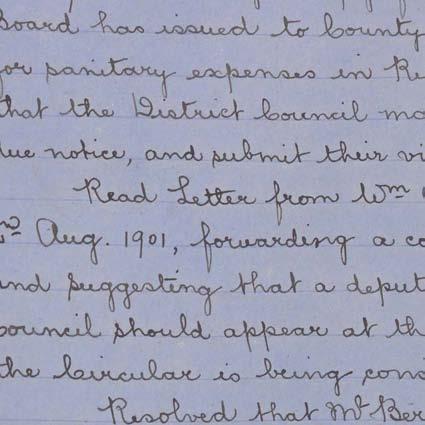 Board has issued to County
for sanitary expenses in R
that the District Council m
due notice, and submit their vi
Read Letter from Wm
nd Aug. 1901, forwarding a co
and suggesting that a deput
Council should appear at th
the Circular is being con
Resolved that Mr Ber